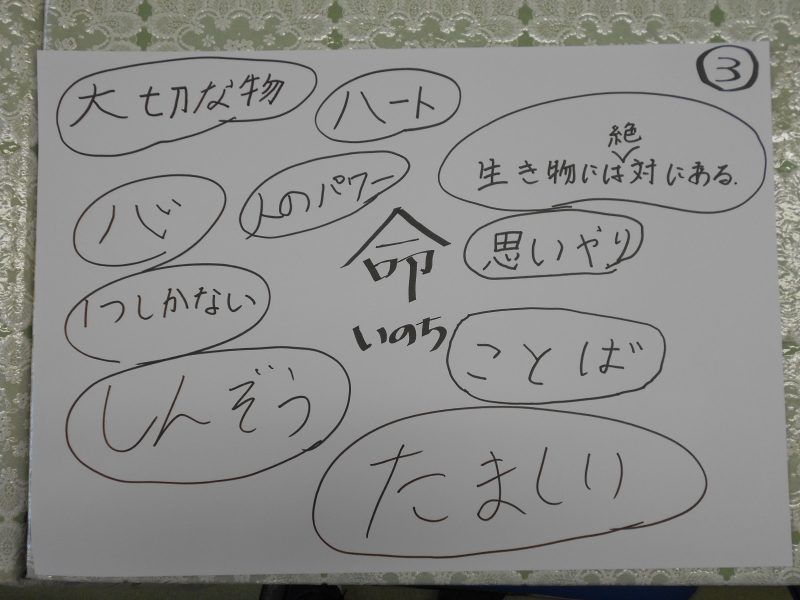 ③
大切な物
ハート
生き物には絶対にある.
人のパワー
命
いのち
思いやり
1つしかない
ことば
しんぞう
たましい